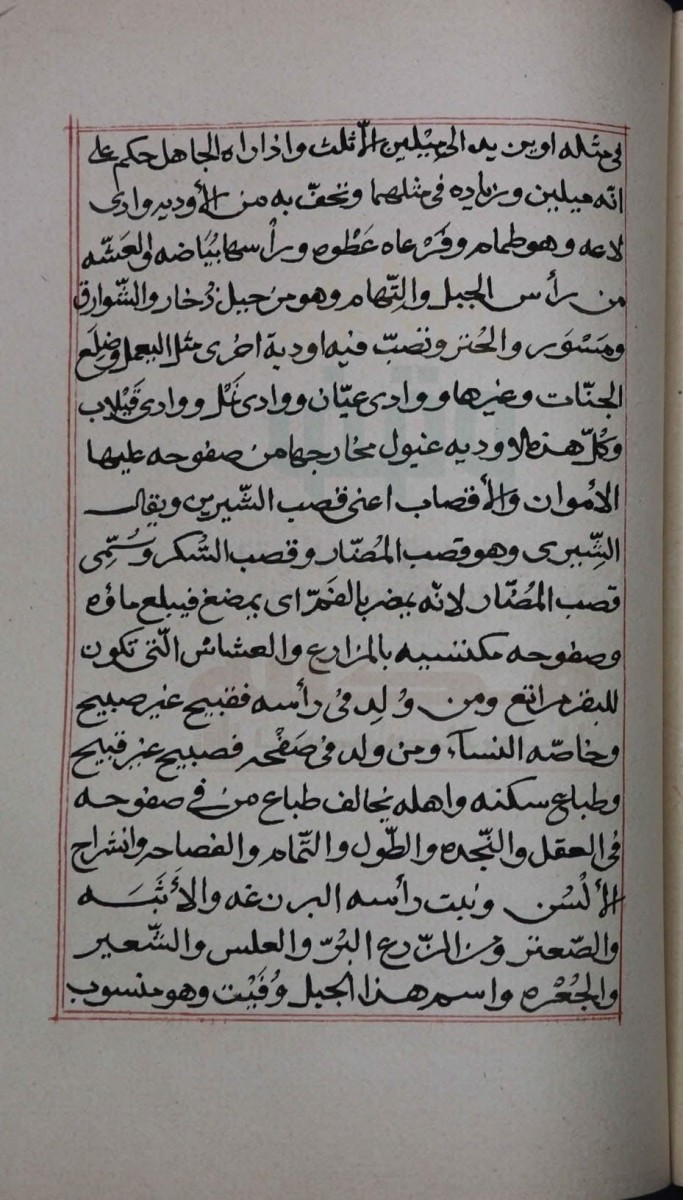 في مثله او يزيد الى ميلين الّا ثلث واذا راه الجاهل حكم على
انّه ميلين وزياده في مثلهما وتحفّ به من الأوديه وادى
لاعه وهو طمام وفَرْعاه عَطْوه ورأسها بيَاضه او العَشّه
من رأس الجبل والتِّهام وهو من جبل ذُخار والشّوارق
ومَسْوَر والخنر وتصبّ فيه اودية اخرى مثل البعمل وضِلَع
الجنّات وغيرها ووادى عيّان ووادى نَمْل ووادى قَيْلاب
وكُلّ هذه الاوديه غيول مخارجها من صفوحه عليها
الامْوان والأقصاب اعنى قصب الشّيرين ويقال
الشِّيرى وهو قصب المُضّار وقصب السُّكر وسُمّى
قصب المُضّار لانّه يمضر بالفم اى يمضغ فيبلع ماؤه
وصفوحه مكتسيه بالمزارع والعشاش الّتى تكون
للبقر مراتع ومن وُلِد فى رأسه فقبيح غير صبيح
وخاصّه النسآء ومن ولد فى صَفْحه فصبيح غير قبيح
وطباع سكنه واهله يخالف طباع من في صفوحه
فى العقل والنّجده والطّول والتّمام والفصاحه وانشراح
الألْسُن ونبت رأسه البرنغه والأَثَبَه
والصّعتر ومن الزّرع البُرّ والعلس والشّعير
والجُعْره واسم هذا الجبل وُفَيْت وهو منسوب